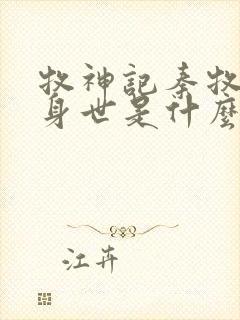 牧神記秦牧
身世是什麼
江卉